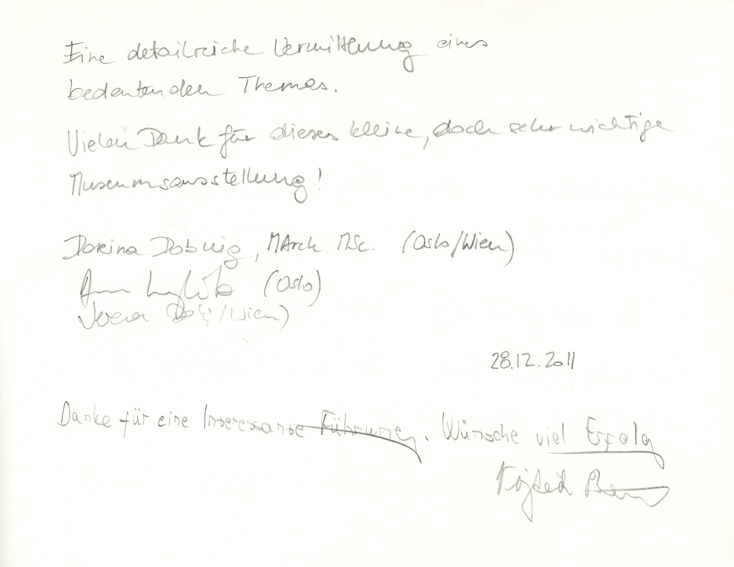 Eine detailreiche Vermittlung eines
bedeutenden Themas.
Vielen Dank für dieses kleine, doch sehr wichtige
Museumsausstellung!
Dorina Dobnig, MArch MSc. (Oslo/Wien)
(Oslo)
Wien)
28.12.2011
Danke für eine Interessante Führung. Wünsche viel Erfolg